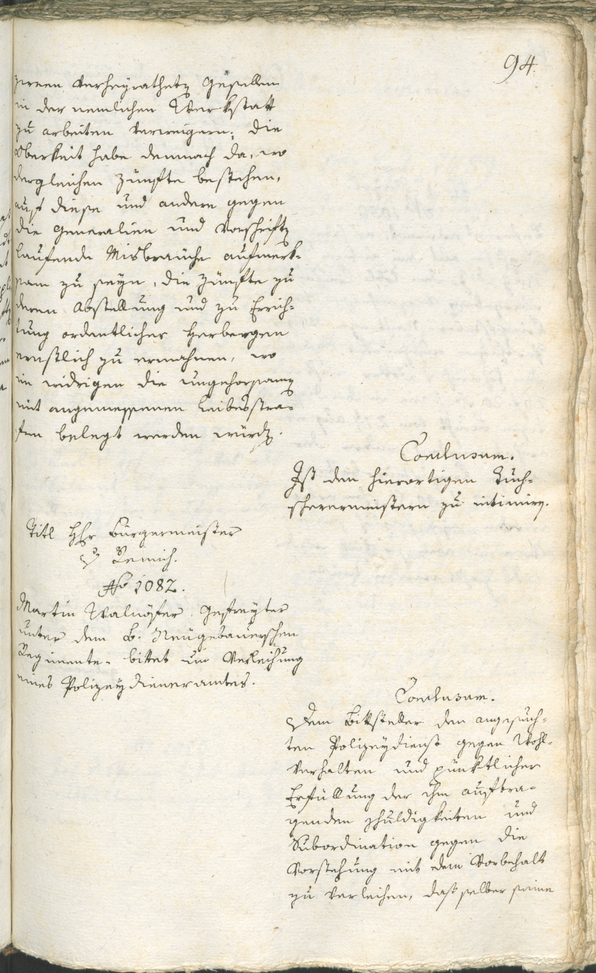 94.
zween verheyratheten Gesellen
in der nemlichen Werkstatt
zu arbeiten verweigern; die
Oberkeit habe demnach da, wo
dergleichen Zünfte bestehen,
auf diese und andere gegen
die Generalien und Vorschriften
laufende Misbräuche aufmerk-
sam zu seyn, die Zünfte zu
deren Abstellung und zu Errich-
tung ordentlicher Herbergen
ernstlich zu ermahnen, wo
im widrigen die ungehorsamen
mit angemessenen Leibesstra-
fen belegt werden würden.
Conclusum.
Ist den hierortigen Tuch-
scherermeistern zu intimiren.
Titl Hr Bürgermeister
No 1082.
Martin Walhöfer Gefreyter
unter dem B. Neugebauerschen
Regimente bittet um Verleihung
eines Polizeydieneramtes.
Conclusum.
Dem Bittsteller den angesuch-
ten Polizeydienst gegen Wohl-
verhalten und pünktlicher
Erfüllung der ihm auftra-
genden Schuldigkeiten und
Subordination gegen die
Vorstehung mit dem Vorbehalt
zu verleihen, dass selber seine